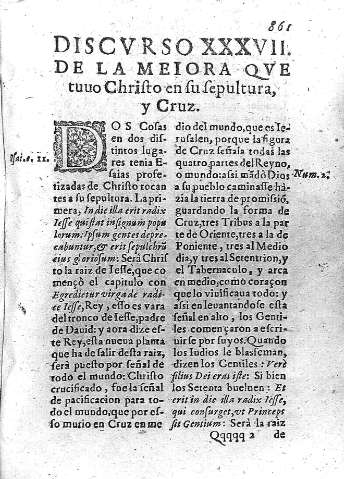 861
DISCVRSO XXXVII.
DE LA MEIORA QVE
tuuo Christo en su sepultura,
y Cruz.
Isai. c. 11.
DOS Cosas
en dos dis-
tintos luga-
res tenia E-
saias profe-
tizadas de Christo tocan
tes a su sepultura. La pri-
mera, In die illa erit radix
Iesse quistat insignum popu
lorum: Ipsum gentes depre-
cabuntur, & erit sepulchrũ
eius gloriosum: Será Chris
to la raiz de Iesse, que co-
mençó el capitulo con
Egredietur virga de radi-
ce Iesse, Rey, esto es vara
del tronco de Iesse, padre
de Dauid: y aora dize es-
te Rey, esta nueua planta
que ha de salir desta raiz,
será puesto por señal de
todo el mundo: Christo
crucificado, fue la señal
de pacificacion para to-
do el mundo, que por es-
so murio en Cruz en me
dio del mundo, que es Ie-
rusalen, porque la figura
de Cruz señala todas las
quatro partes del Reyno,
o mundo: asi mãdò Dios
a su pueblo caminasse hà-
zia la tierra de promissiõ,
guardando la forma de
Cruz, tres Tribus a la par
te de Oriente, tres a la de
Poniente, tres al Medio
dia, y tres al Setentrion, y
el Tabernaculo, y arca
en medio, como coraçon
que lo viuificaua todo: y
assi en leuantandose esta
señal en alto, los Genti-
les començaron a escri-
uirse por suyos. Quando
los Iudios le blasfeman,
dizen los Gentiles: Verè
filius Dei eras iste: Si bien
los Setenta bueluen: Et
erit in die illa radix Iesse,
qui consurget, vt Princeps
sit Gentium: Será la raiz
Num. 2.
Qqqqq 2 de